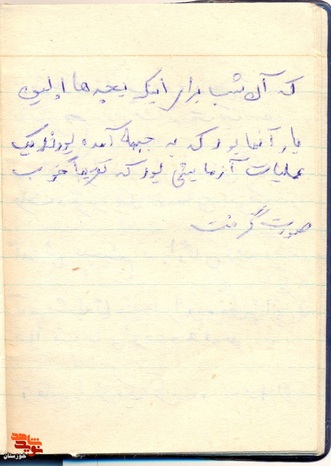 که آن شب برای اینکه بچه ها اولین
بار آنها بود که به جبهه آمده بودند یک
عملیات آزمایشی بود که تقریبا خوب
صورت گرفت
نوید شاهد
خوزستان